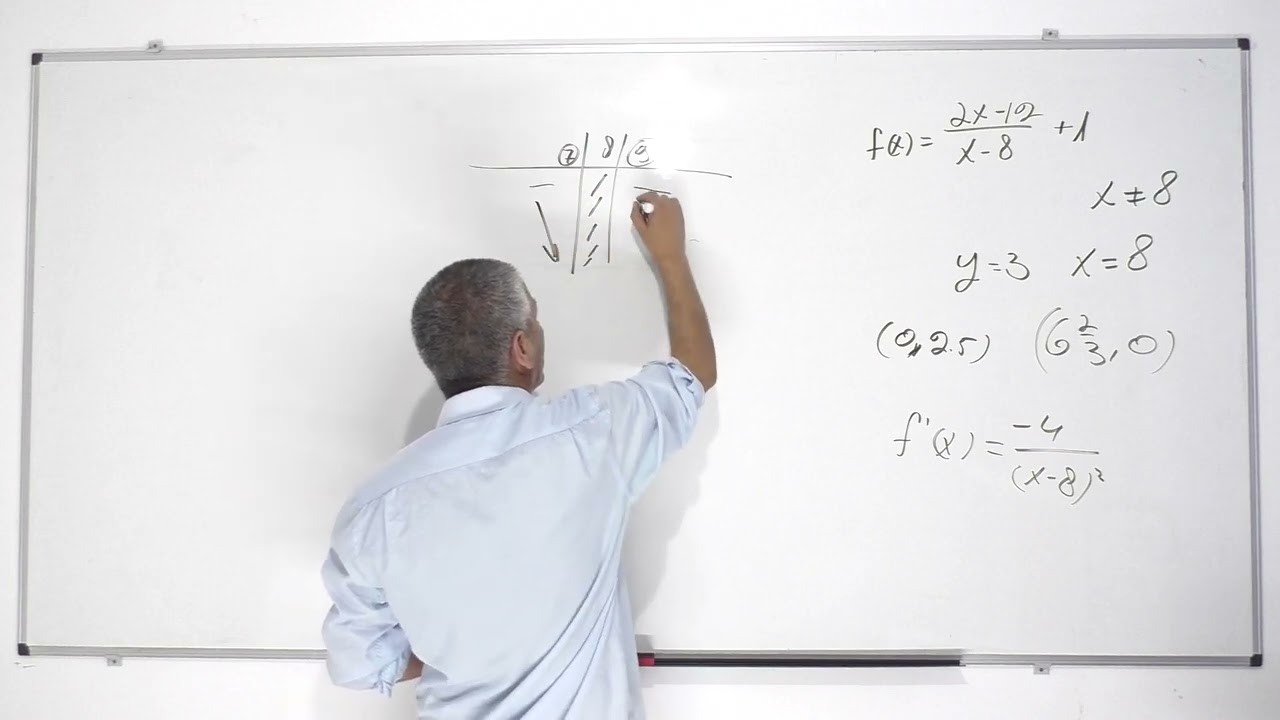 7 8 9
− −
f(x) = (2x-12)/(x-8) + 1
x ≠ 8
y = 3 x = 8
(0, 2.5) (6 2/3, 0)
f'(x) = -4/(x-8)²